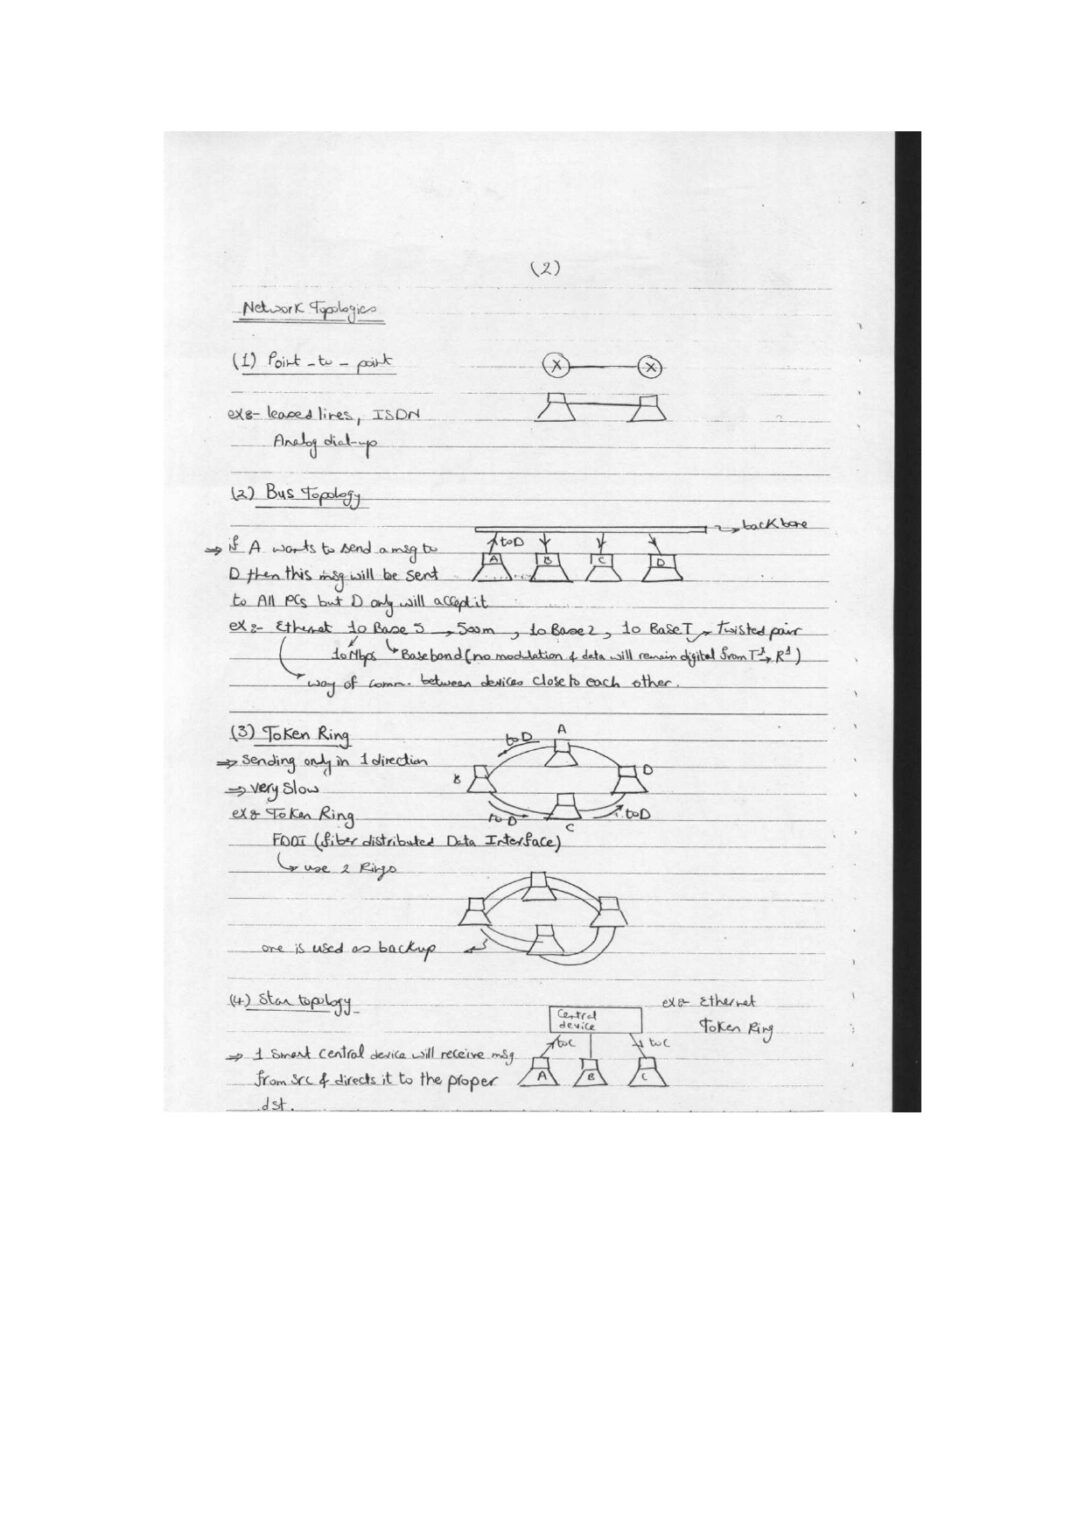 (2)
Network Topologies
(1) Point-to-point
ex:- leased lines, ISDN
Analog dial-up
(2) Bus Topology
backbone
⇒ if A wants to send a msg to
to D
A B C D
D then this msg will be sent
to All PCs but D only will accept it
ex:- Ethernet 10 Base 5 → 500m, 10 Base 2, 10 Base T → Twisted pair
10 Mbps Baseband (no modulation & data will remain digital from T → R)
way of comm. between devices close to each other.
(3) Token Ring
A
to D
⇒ sending only in 1 direction
B D
⇒ very slow
ex:- Token Ring
to D to D
C
FDDI (fiber distributed Data Interface)
use 2 Rings
one is used as backup
(4) Star topology
ex:- Ethernet
Token Ring
Central
device
to C to C
⇒ 1 smart central device will receive msg
A B C
from src & directs it to the proper
dst.